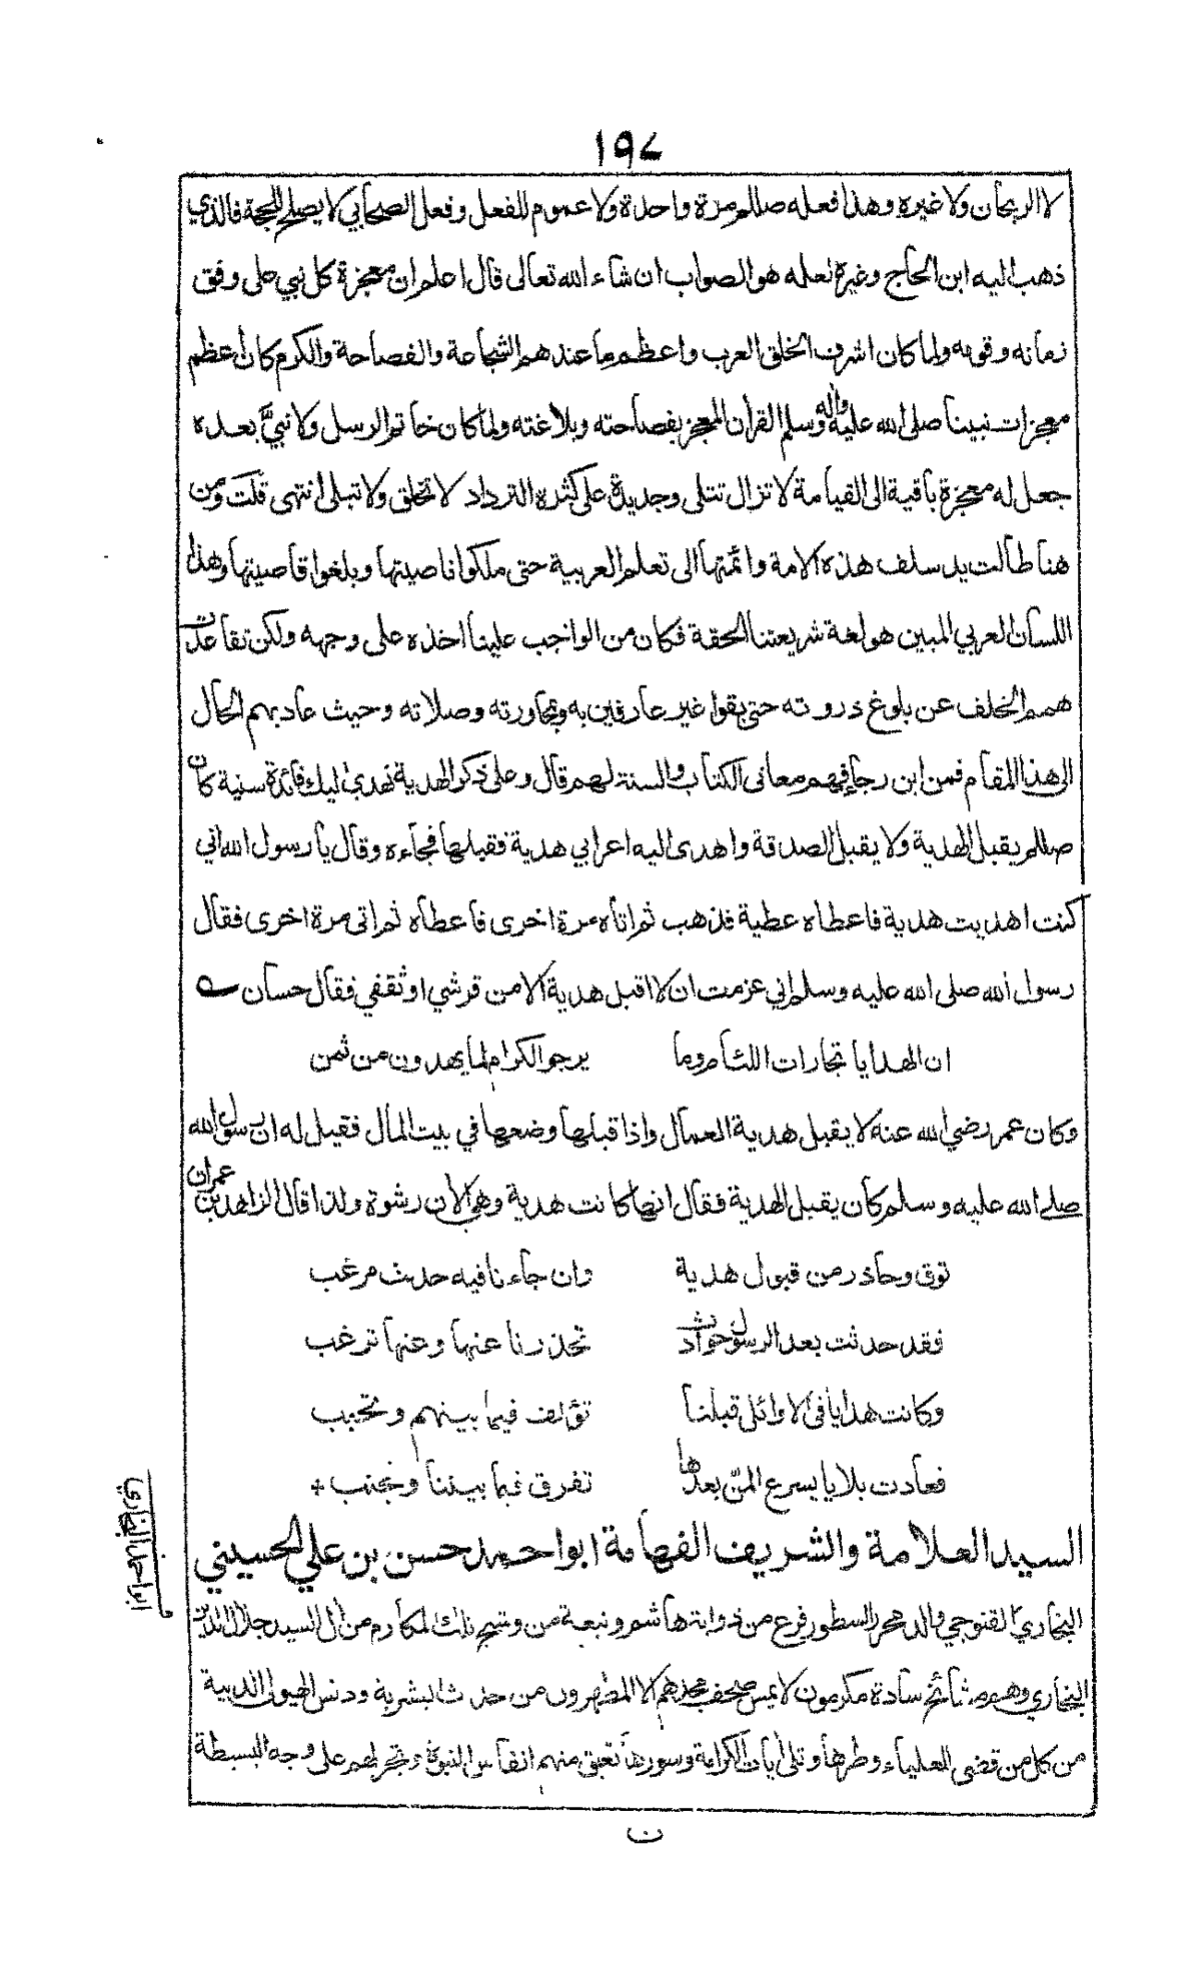 ١٩٧
لا الريحان ولا غيره وهذا فعله صللم مرة واحدة ولا عموم للفعل وفعل الصحابي لا يصلح للحجة فالذي
ذهب اليه ابن الحاج وغيرة لعله هو الصواب ان شاء الله تعالى قال اعلم ان معجزة كل نبي على وفق
زمانه وقومه ولما كان اشرف الخلق العرب واعظم ما عندهم الشجاعة والفصاحة والكرم كان اعظم
معجزات نبينا صلى الله عليه واله وسلم القران المعجز بفصاحته وبلاغته ولما كان خاتم الرسل ولا نبيَّ بعده
جعل له معجزة باقية الى القيامة لا تزال تتلى وجديدة على كثرة الترداد لا تخلق ولا تبلى انتهى قلت ومن
هنا طالت يد سلف هذه الامة وائمتها الى تعلم العربية حتى ملكوا ناصيتها وبلغوا قاصيتها وهذا
اللسان العربي المبين هو لغة شريعتنا الحقة فكان من الواجب علينا اخذه على وجهه ولكن تقاعدت
همم الخلف عن بلوغ ذروته حتى بقوا غير عارفين به وبمحاورته وصلاته وحيث عاد بهم الحال
الى هذا المقام فمن اين رجاء فهم معاني الكتاب والسنة لهم قال وعلى ذكر الهدية نهدي اليك فائدة سنية كان
صللم يقبل الهدية ولا يقبل الصدقة واهدى اليه اعرابي هدية فقبلها فجاءه وقال يا رسول الله اني
كنت اهديت هدية فاعطاه عطية فذهب ثم اتاه مرة اخرى فاعطاه ثم اتى مرة اخرى فقال
رسول الله صلى الله عليه وسلم اني عزمت ان لا اقبل هدية الا من قرشي او ثقفي فقال حسان
ان الهدايا تجارات اللئام وما يرجو الكرام لما يهدون من ثمن
وكان عمر رضي الله عنه لا يقبل هدية العمال واذا قبلها وضعها في بيت المال فقيل له ان رسول الله
صلى الله عليه وسلم كان يقبل الهدية فقال انها كانت هدية وهي الان رشوة ولذا قال الزاهد بن عمران
توق وحاذر من قبول هدية وان جاءنا فيه حديث مرغب
فقد حدثت بعد الرسول حوادث تحذرنا عنها وعنها ترغب
وكانت هدايا في الاوائل قبلنا تؤلف فيما بينهم وتحبب
فعادت بلايا يسرع المنّ بعدها تفرق فيما بيننا وتجنب +
السيد العلامة والشريف الفهامة ابو احمد حسن بن علي الحسيني
البخاري القنوجي والد محرر السطور فرع من ذوابة هاشم ونبعة من وشيج تلك المكارم من ال السيد جلال الدين
البخاري وهم مشائخ سادة مكرمون لا يمس صحف مجدهم الا المطهرون من حدث البشرية ودنس الهيولى الدنية
من كل من قضى العلياء وطرها وتلى ايات الكرامة وسورها تعبق منهم انفاس النبوة وتجر لهم على وجه البسيطة
ابو احمد البخاري